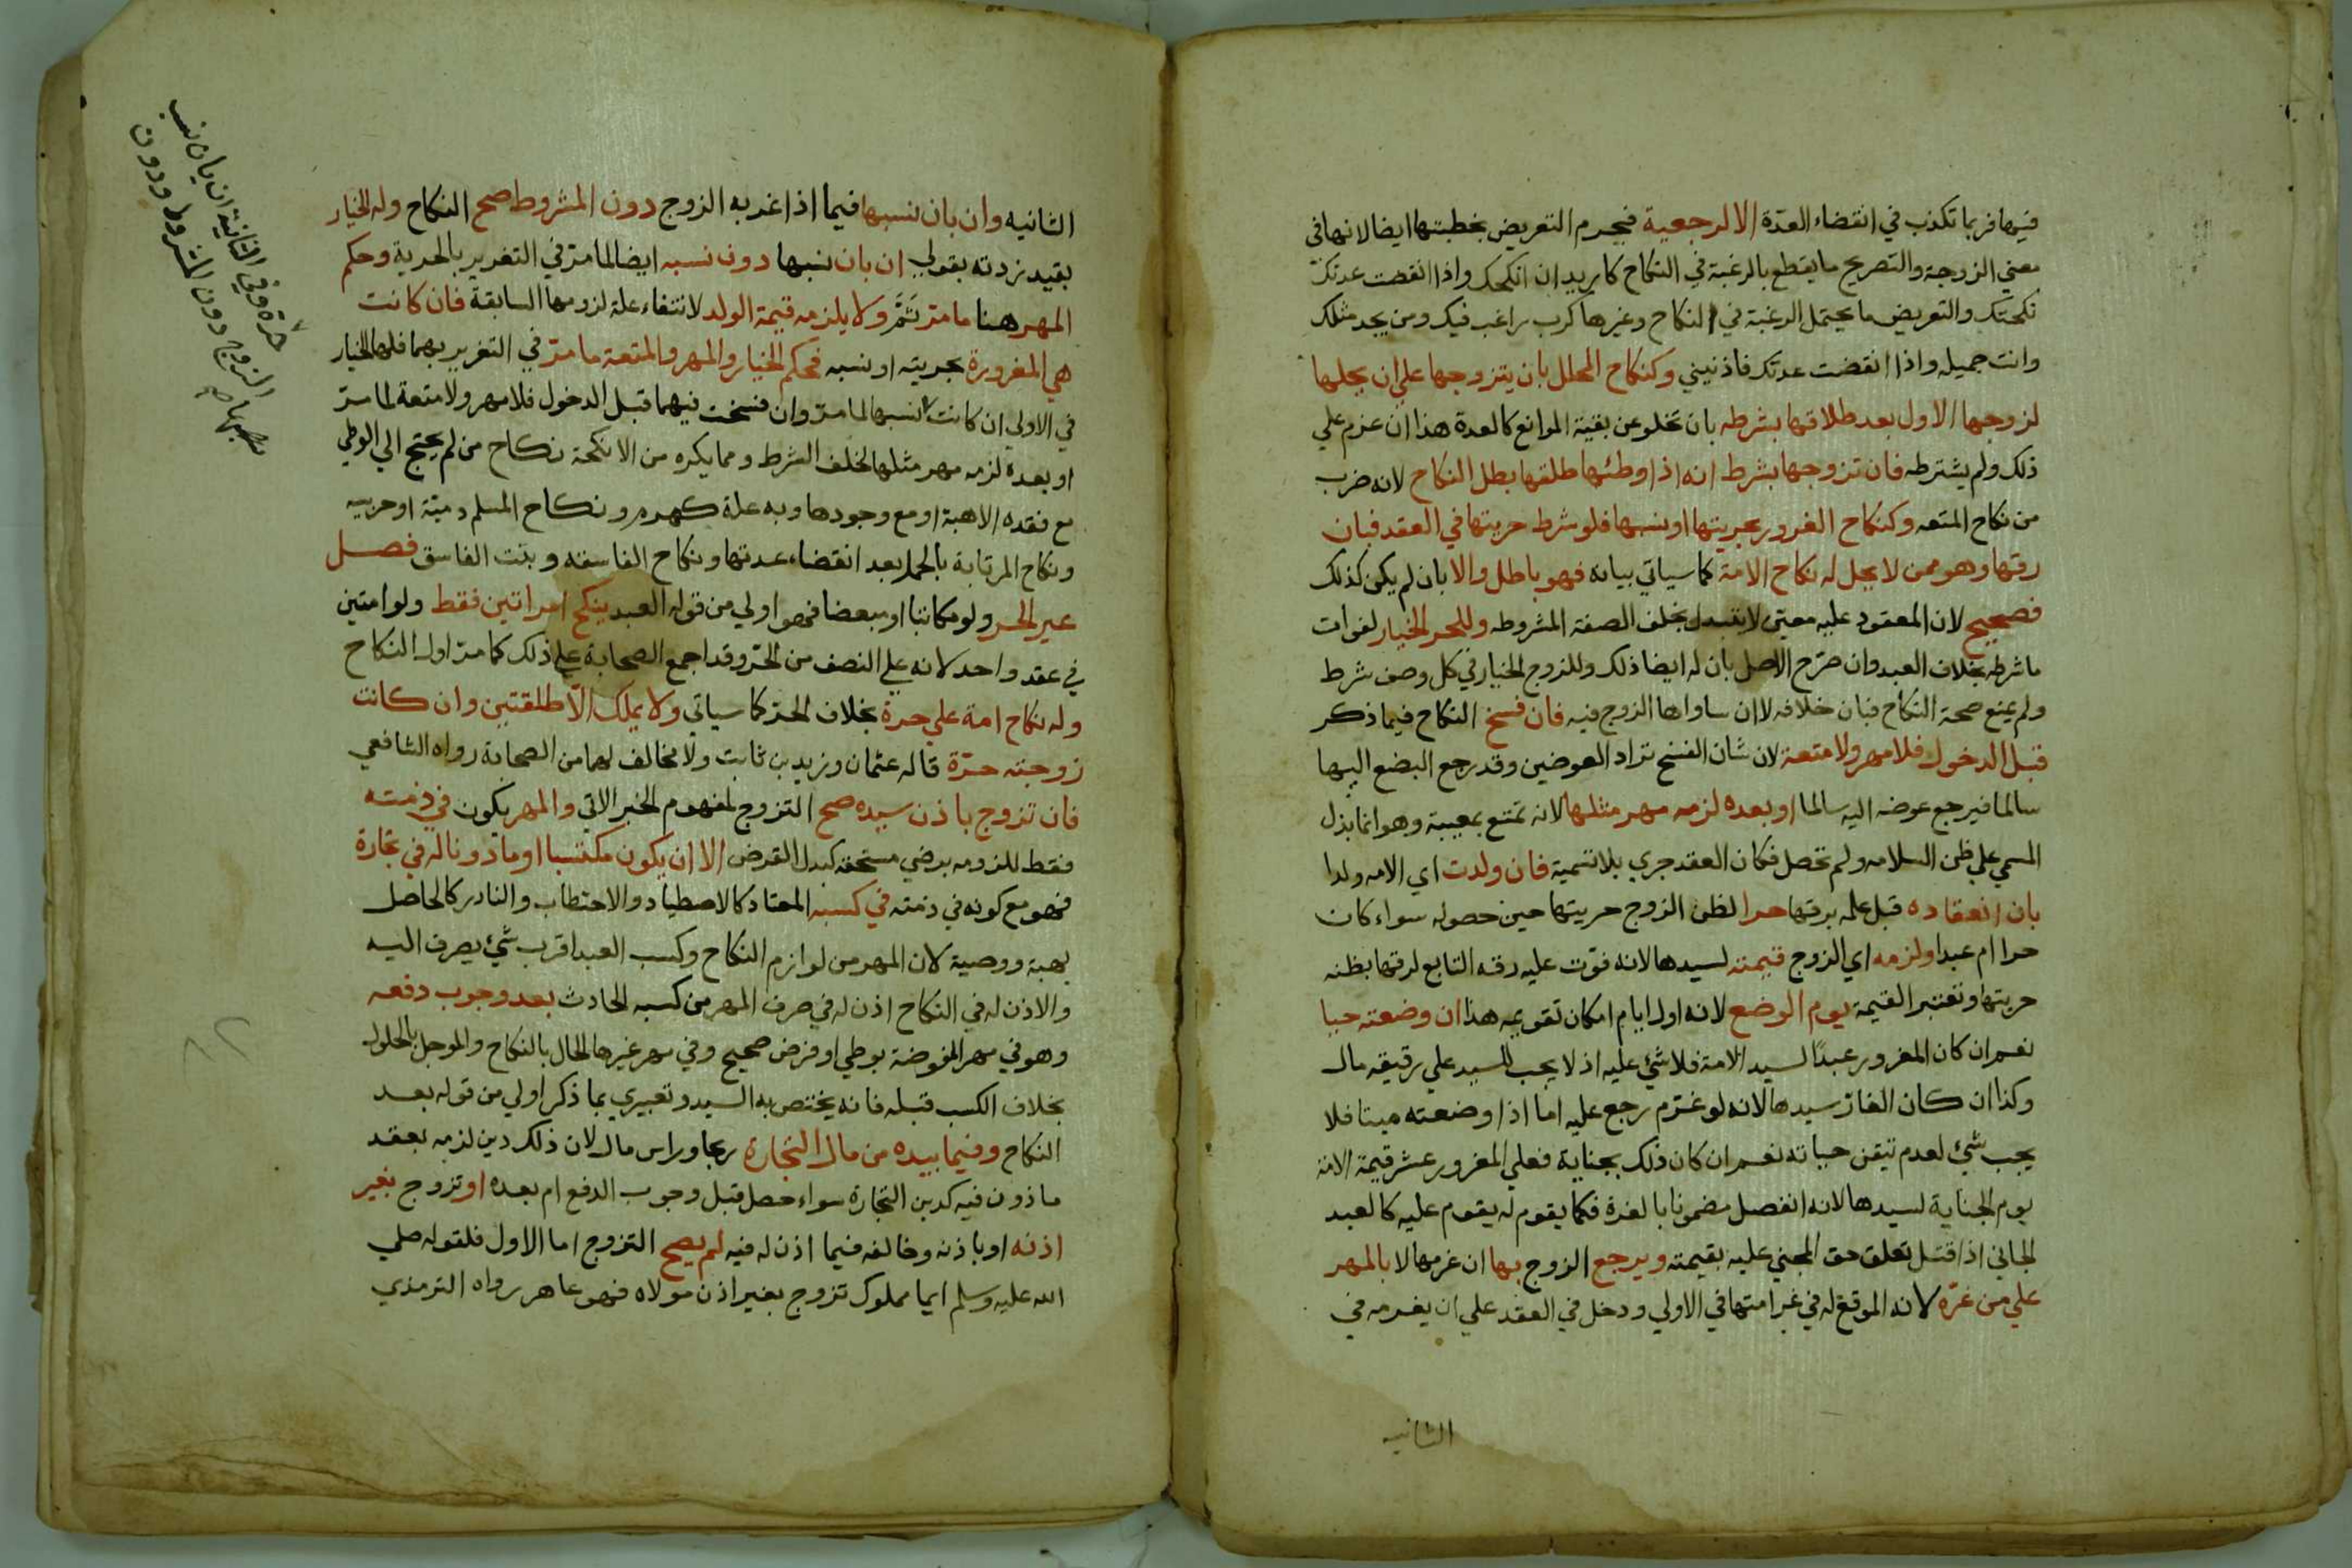 فيها فربما تكذب في انقضاء العدة الا الرجعية فيحرم التعريض بخطبتها ايضا لانها في
معني الزوجة والتصريح ما يقطع بالرغبة في النكاح كاريد ان انكحك واذا انقضت عدتك
نكحتك والتعريض ما يحتمل الرغبة في النكاح وغيرها كرب راغب فيك ومن يجد مثلك
وانت جميله واذا انقضت عدتك فاذنيني وكنكاح المحلل بان يتزوجها علي ان يحلها
لزوجها الاول بعد طلاقها بشرطه بان تخلو عن بقية الموانع كالعدة هذا ان عزم علي
ذلك ولم يشترطه فان تزوجها بشرط انه اذا وطئها طلقها بطل النكاح لانه ضرب
من نكاح المتعه وكنكاح الغرور بحريتها او نسبها فلو شرط حريتها في العقد فبان
رقها وهو ممن لا يحل له نكاح الامة كما سياتي بيانه فهو باطل والا بان لم يكن كذلك
فصحيح لان المعقود عليه معين لا يتبدل بخلف الصفة المشروطه وللحر الخيار لفوات
ما شرطه بخلاف العبد وان صرح الاصل بان له ايضا ذلك وللزوج الخيار في كل وصف شرط
ولم يمنع صحة النكاح فبان خلافه لا ان ساواها الزوج فيه فان فسخ النكاح فيما ذكر
قبل الدخول فلا مهر ولا متعة لان شان الفسخ تراد العوضين وقد رجع البضع اليها
سالما فيرجع عوضه اليه سالما او بعده لزمه مهر مثلها لانه تمتع بمعيبة وهو انما بذل
المسمي علي ظن السلامه ولم تحصل فكان العقد جري بلا تسمية فان ولدت اي الامه ولدا
بان انعقاده قبل علمه برقها حرا لظن الزوج حريتها حين حصوله سواء كان
حرا ام عبدا ولزمه اي الزوج قيمته لسيدها لانه فوت عليه رقه التابع لرقها بظنه
حريتها وتعتبر القيمة يوم الوضع لانه اول ايام امكان تقويمه هذا ان وضعته حيا
نعم ان كان المغرور عبدا لسيد الامة فلا شئ عليه اذ لا يجب للسيد علي رقيقه مال
وكذا ان كان الغار سيدها لانه لو غرم رجع عليه اما اذا وضعته ميتا فلا
يجب شئ لعدم تيقن حياته نعم ان كان ذلك بجناية فعلي المغرور عشر قيمة الامة
يوم الجناية لسيدها لانه انفصل مضمونا بالغرة فكما يقوم له يقوم عليه كالعبد
الجاني اذا قتل تعلق حق المجني عليه بقيمته ويرجع الزوج بها ان غرمها لا بالمهر
علي من غره لانه الموقع له في غرامتها في الاولي ودخل في العقد علي ان يغرمه في
الثانيه
الثانيه وان بان نسبها فيما اذا غر به الزوج دون المشروط صح النكاح وله الخيار
بقيد زدته بقولي ان بان نسبها دون نسبه ايضا لما مر في التغرير بالحرية وحكم
المهر هنا ما مر ثم ولا يلزمه قيمة الولد لانتفاء علة لزومها السابقة فان كانت
هي المغرورة بحريته او نسبه فحكم الخيار والمهر والمتعة ما مر في التغرير بهما فلها الخيار
في الاولي ان كانت نسبها لما مر وان فسخت فيهما قبل الدخول فلا مهر ولا متعة لما مر
او بعده لزمه مهر مثلها لخلف الشرط ومما يكره من الانكحة نكاح من لم يحتج الي الوطي
مع فقده الاهبة او مع وجودها وبه علة كهرم ونكاح المسلم ذمية او حربيه
ونكاح المرتابة بالحمل بعد انقضاء عدتها ونكاح الفاسقه وبنت الفاسق فصل
غير الحر ولو مكاتبا او مبعضا فهو اولي من قوله العبد ينكح امراتين فقط ولو امتين
في عقد واحد لانه علي النصف من الحر وقد اجمع الصحابة علي ذلك كما مر اول النكاح
وله نكاح امة علي حرة بخلاف الحر كما سياتي ولا يملك الا طلقتين وان كانت
زوجته حرة قاله عثمان وزيد بن ثابت ولا مخالف لهما من الصحابة رواه الشافعي
فان تزوج باذن سيده صح التزوج لمفهوم الخبر الاتي والمهر يكون في ذمته
فقط للزومه برضي مستحقه كبدل القرض الا ان يكون مكتسبا او ماذونا له في تجارة
فهو مع كونه في ذمته في كسبه المعتاد كالاصطياد والاحتطاب والنادر كالحاصل
بهبة ووصية لان المهر من لوازم النكاح وكسب العبد اقرب شئ يصرف اليه
والاذن له في النكاح اذن له في صرف المهر من كسبه الحادث بعد وجوب دفعه
وهو في مهر المفوضة بوطي او فرض صحيح وفي مهر غيرها الحال بالنكاح والموجل بالحلول
بخلاف الكسب قبله فانه يختص به السيد وتعبيري بما ذكر اولي من قوله بعد
النكاح وفيما بيده من مال التجارة ربحا وراس مال لان ذلك دين لزمه بعقد
ماذون فيه كدين التجارة سواء حصل قبل وجوب الدفع ام بعده او تزوج بغير
اذنه او باذنه وخالفه فيما اذن له فيه لم يصح التزوج اما الاول فلقوله صلي
الله عليه وسلم ايما مملوك تزوج بغير اذن مولاه فهو عاهر رواه الترمذي
حرة وفي الثانية ان بان نسب
الزوج دون المشروط ودون
نسبها صح